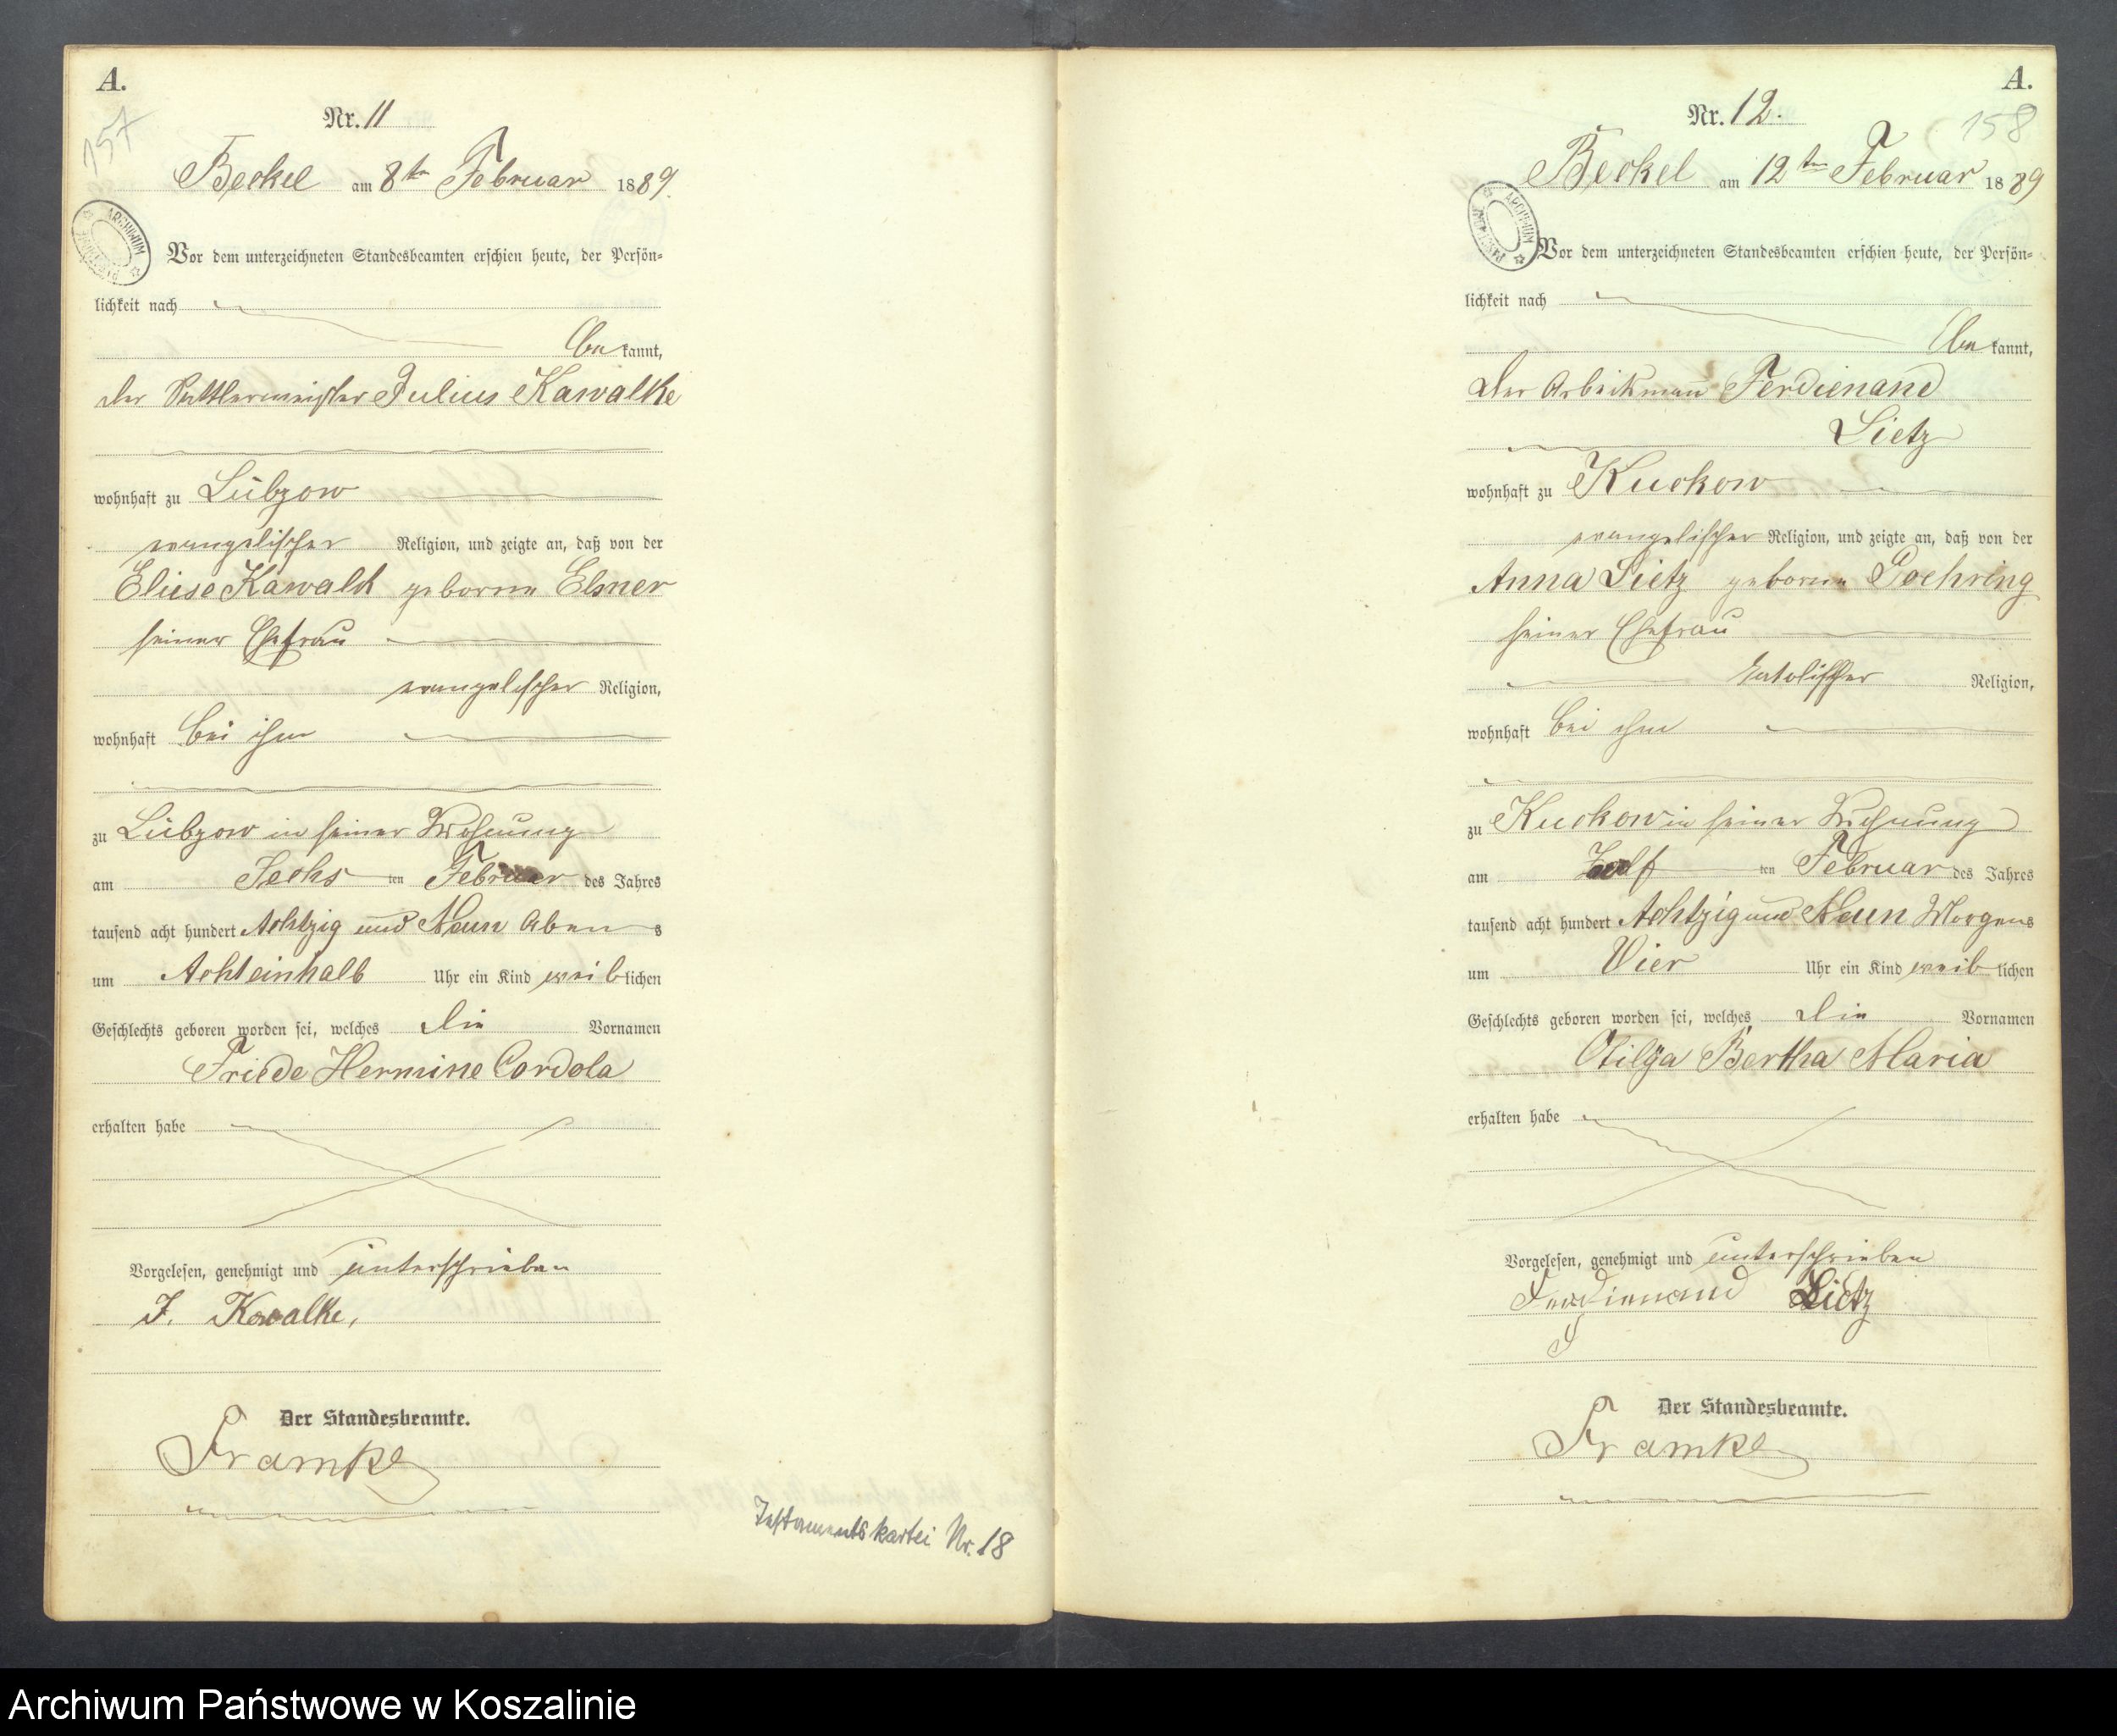 A.
157
Nr. 11
Beckel am 8ten Februar 1889.
ARCHIWUM PAŃSTWOWE
Vor dem unterzeichneten Standesbeamten erschien heute, der Persön-
lichkeit nach
bekannt,
der Sattlermeister Julius Kawalke
wohnhaft zu Lübzow
evangelischer Religion, und zeigte an, daß von der
Eliese Kawalk geborene Elsner
seiner Ehefrau
evangelischer Religion,
wohnhaft bei ihm
zu Lübzow in seiner Wohnung
am Sechsten Februar des Jahres
tausend acht hundert Achtzig und Neun Abends
um Achteinhalb Uhr ein Kind weiblichen
Geschlechts geboren worden sei, welches die Vornamen
Friede Hermine Cordola
erhalten habe
Vorgelesen, genehmigt und unterschrieben
J. Kawalke,
Der Standesbeamte.
Framke
Testamentskartei Nr. 18
A.
158
Nr. 12.
Beckel am 12ten Februar 1889
ARCHIWUM PAŃSTWOWE
Vor dem unterzeichneten Standesbeamten erschien heute, der Persön-
lichkeit nach
bekannt,
der Arbeitsmann Ferdienand
Lietz
wohnhaft zu Kuckow
evangelischer Religion, und zeigte an, daß von der
Anna Lietz geborene Goehring
seiner Ehefrau
katolischer Religion,
wohnhaft bei ihm
zu Kuckow in seiner Wohnung
am Zwölften Februar des Jahres
tausend acht hundert Achtzig und Neun Morgens
um Vier Uhr ein Kind weiblichen
Geschlechts geboren worden sei, welches die Vornamen
Otilga Bertha Maria
erhalten habe
Vorgelesen, genehmigt und unterschrieben
Ferdienand Lietz
Der Standesbeamte.
Framke
Archiwum Państwowe w Koszalinie